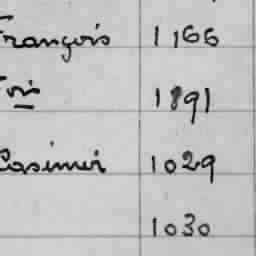 François 1166
Fois 1891
Casimir 1029
1030